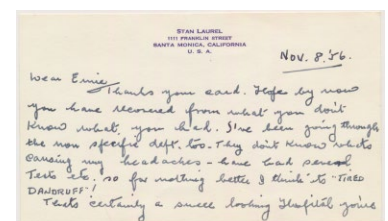 STAN LAUREL
1111 FRANKLIN STREET
SANTA MONICA, CALIFORNIA
U. S. A.
Nov. 8. '56.
Dear Ernie
Thanks your card. Hope by now
you have recovered from what you don't
know what you had. I've been going through
the non specific dept. too. They don't know what's
causing my headaches - have had several
Tests etc. so for nothing better I think its "TIRED
DANDRUFF"!
Thats certainly a swell looking Hospital you're